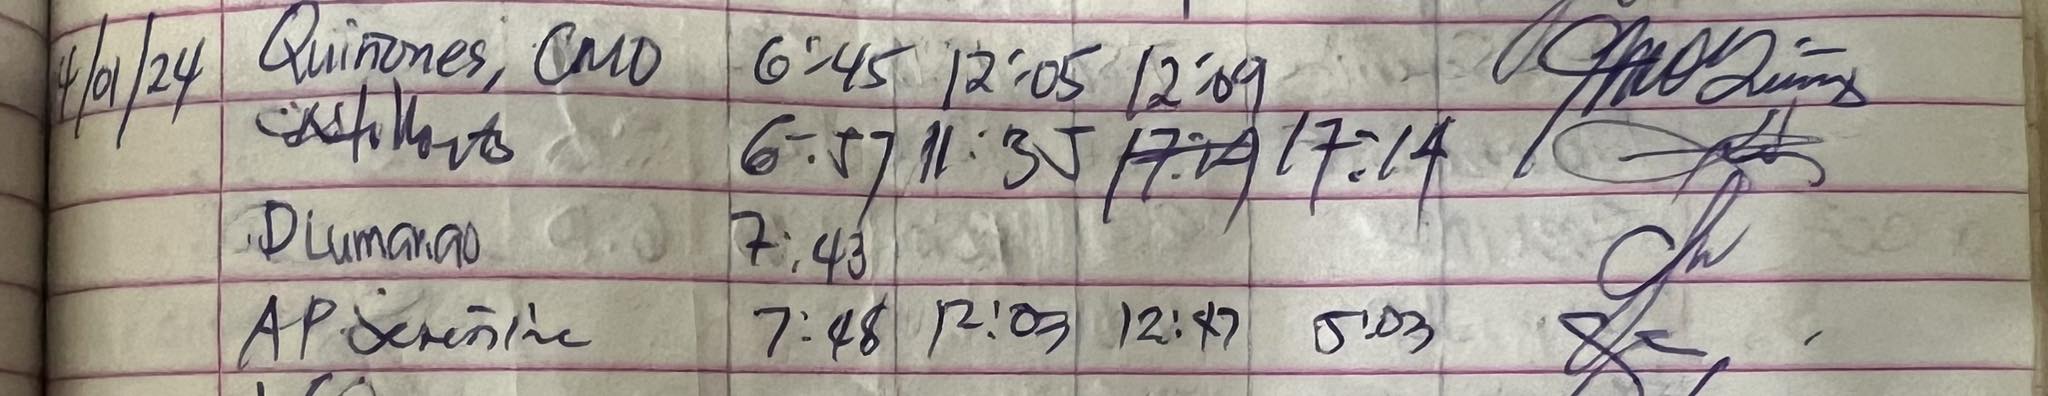 4/01/24 Quinones, CMO 6:45 12:05 12:09
6:57 11:35 17:14 17:14
D Lumanao 7:43
AP 7:48 12:03 12:47 5:03